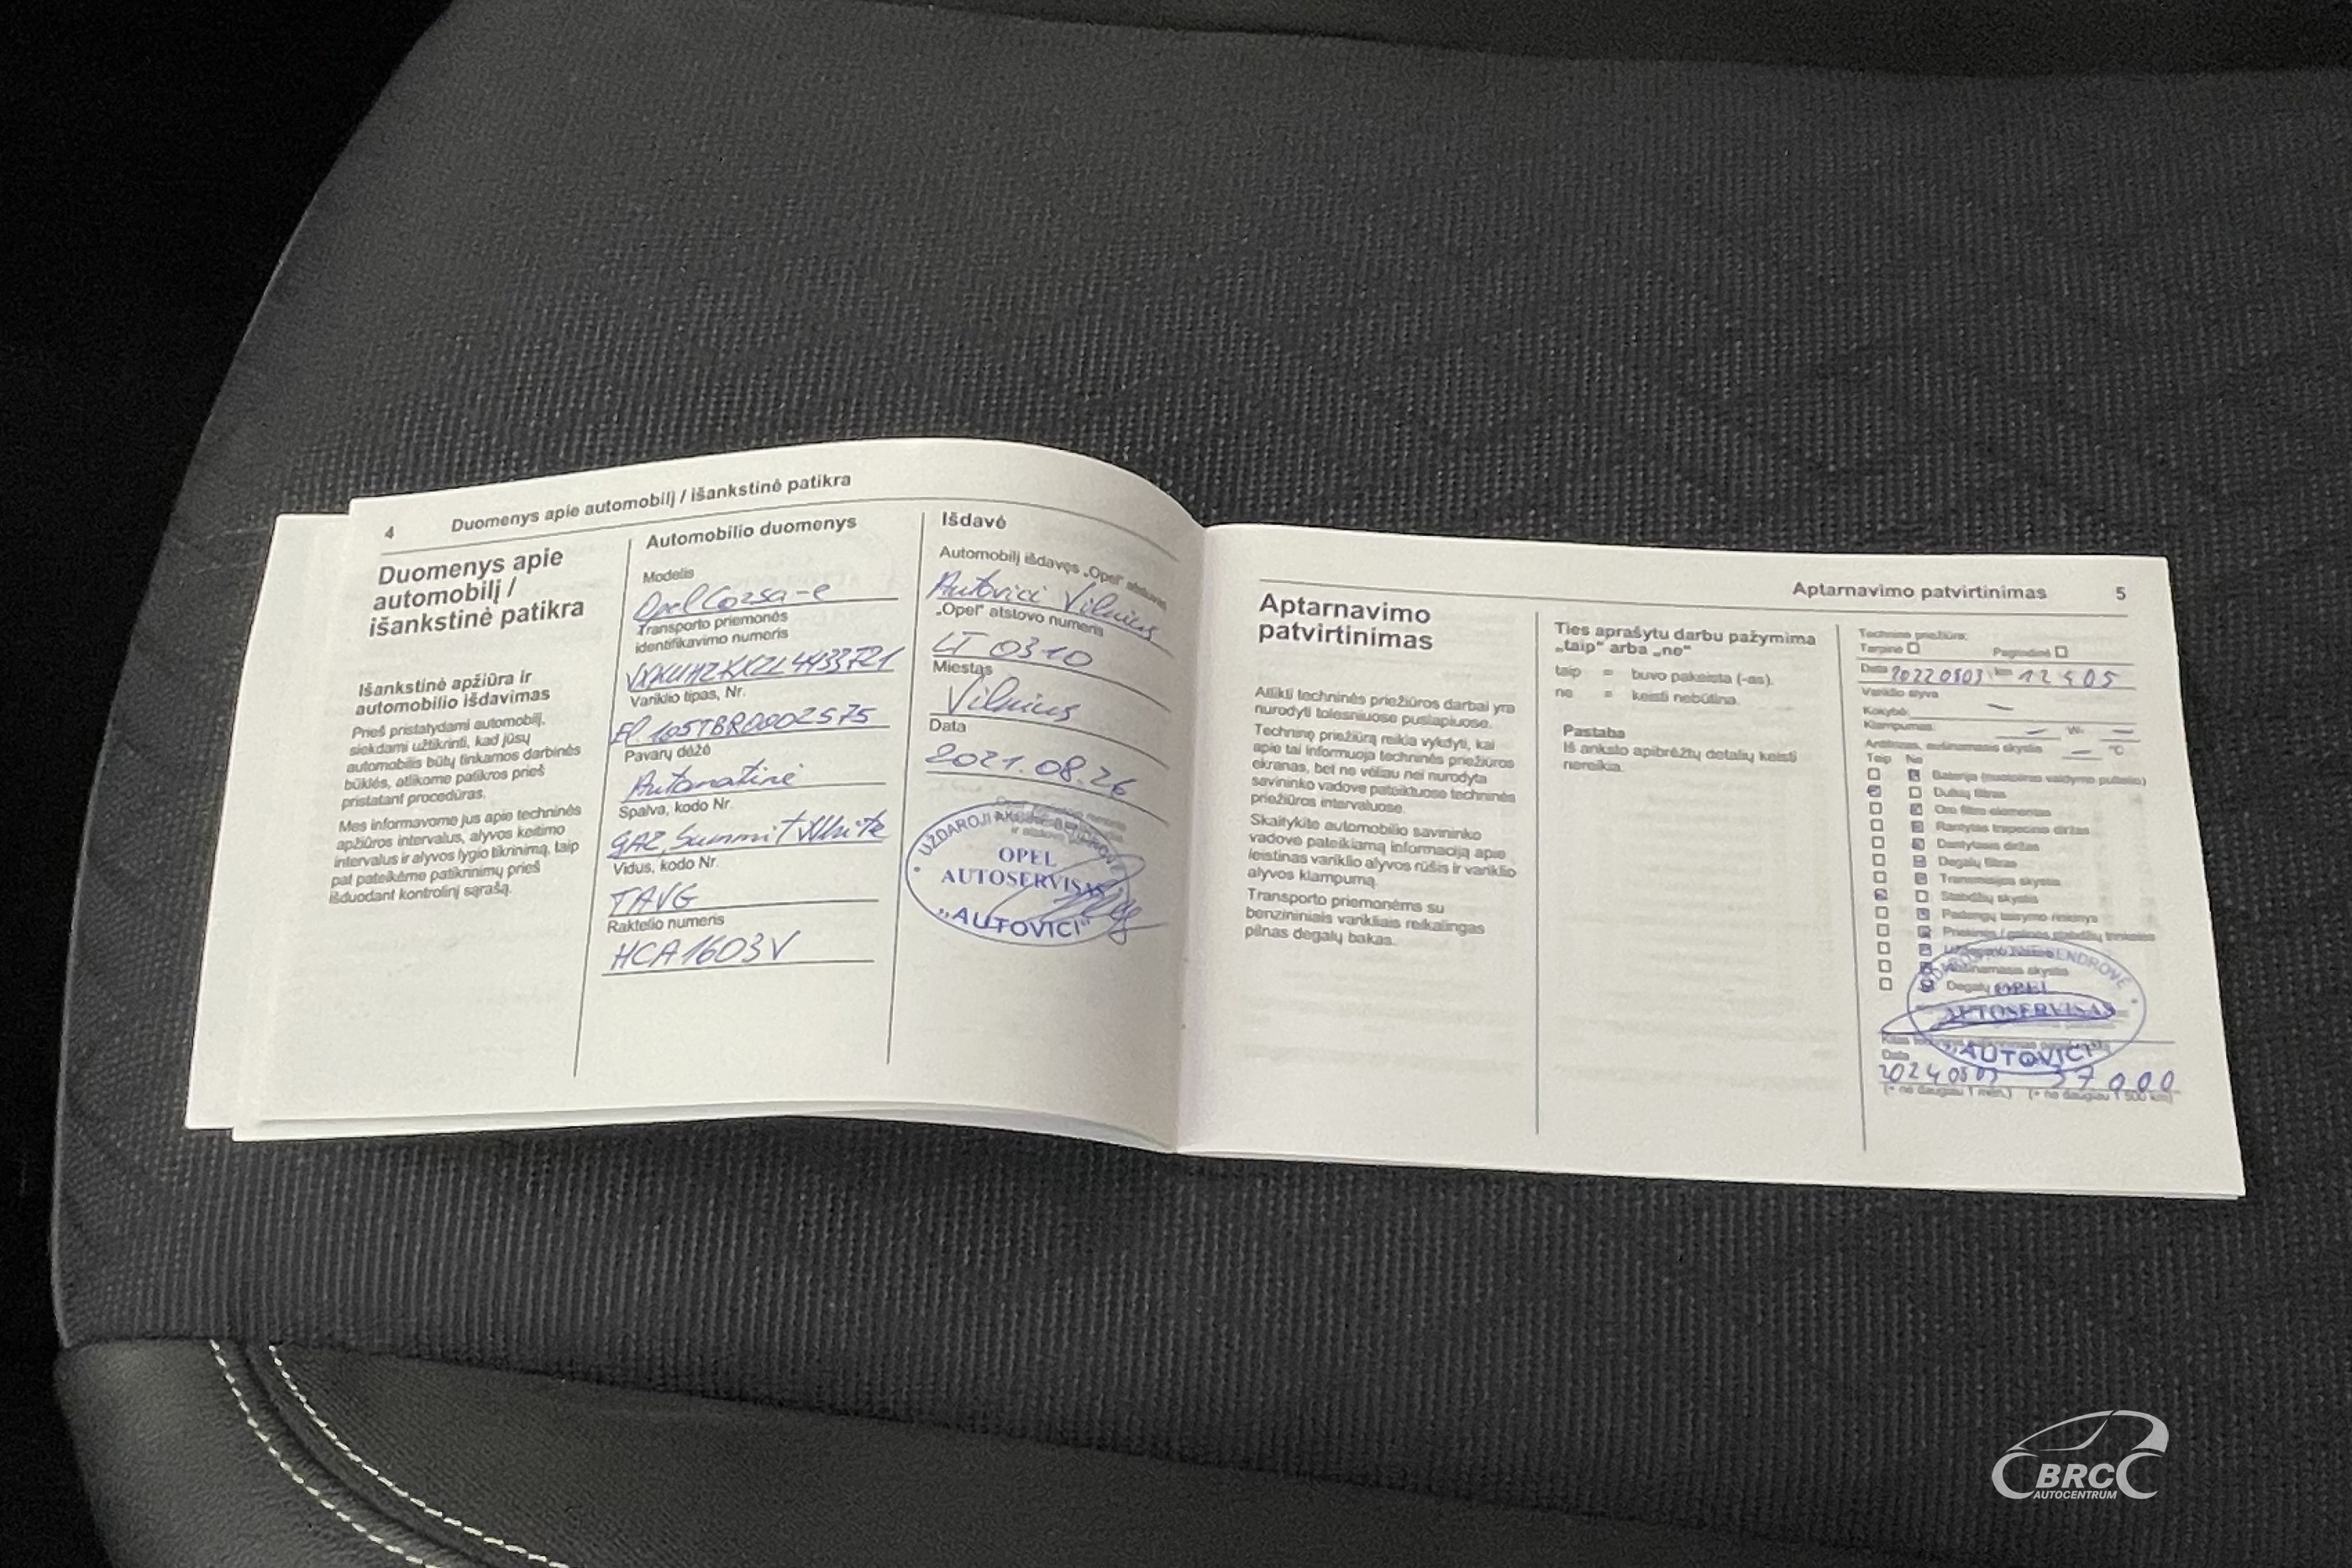 4
Duomenys apie automobilį / išankstinė patikra
Duomenys apie
automobilį /
išankstinė patikra
Išankstinė apžiūra ir
automobilio išdavimas
Prieš pristatydami automobilį,
siekdami užtikrinti, kad jūsų
automobilis būtų tinkamos darbinės
būklės, atlikome patikros prieš
pristatant procedūras.
Mes informavome jus apie techninės
apžiūros intervalus, alyvos keitimo
intervalus ir alyvos lygio tikrinimą, taip
pat pateikėme patikrinimų prieš
išduodant kontrolinį sąrašą.
Automobilio duomenys
Modelis
Opel Corsa-e
Transporto priemonės
identifikavimo numeris
Variklio tipas, Nr.
El. 105TBR0002575
Pavarų dėžė
Automatinė
Spalva, kodo Nr.
GAZ, Summit White
Vidus, kodo Nr.
TAVG
Raktelio numeris
HCA1603V
Išdavė
Automobilį išdavęs „Opel“
Autovici Vilnius
„Opel“ atstovo numeris
LT 0310
Miestas
Vilnius
Data
2021.08.26
UŽDAROJI AKCINĖ BENDROVĖ
OPEL
AUTOSERVISAS
„AUTOVICI“
Aptarnavimo patvirtinimas 5
Aptarnavimo
patvirtinimas
Atlikti techninės priežiūros darbai yra
nurodyti tolesniuose puslapiuose.
Techninę priežiūrą reikia vykdyti, kai
apie tai informuoja techninės priežiūros
ekranas, bet ne vėliau nei nurodyta
savininko vadove pateiktuose techninės
priežiūros intervaluose.
Skaitykite automobilio savininko
vadove pateikiamą informaciją apie
leistinas variklio alyvos rūšis ir variklio
alyvos klampumą.
Transporto priemonėms su
benzininiais varikliais reikalingas
pilnas degalų bakas.
Ties aprašytu darbu pažymima
„taip“ arba „ne“
taip = buvo pakeista (-as).
ne = keisti nebūtina.
Pastaba
Iš anksto apibrėžtų detalių keisti
nereikia.
Techninė priežiūra:
Tarpinė Pagrindinė
Data 20220803 km 12405
Variklio alyva
Kokybė:
Klampumas: W-
Antifrizas, aušinamasis skystis °C
Taip Ne
Baterija (nuotolinio valdymo pultelio)
Dulkių filtras
Oro filtro elementas
Rantytas trapecinis diržas
Dantytasis diržas
Degalų filtras
Transmisijos skystis
Stabdžių skystis
Padangų taisymo rinkinys
Priekinės / galinės stabdžių trinkelės
Aušinamasis skystis
Degalų
BENDROVĖ
OPEL
AUTOSERVISAS
„AUTOVICI“
Data
20240803 37000
(+ ne daugiau 1 mėn.) (+ ne daugiau 1 500 km)
BRC
AUTOCENTRUM